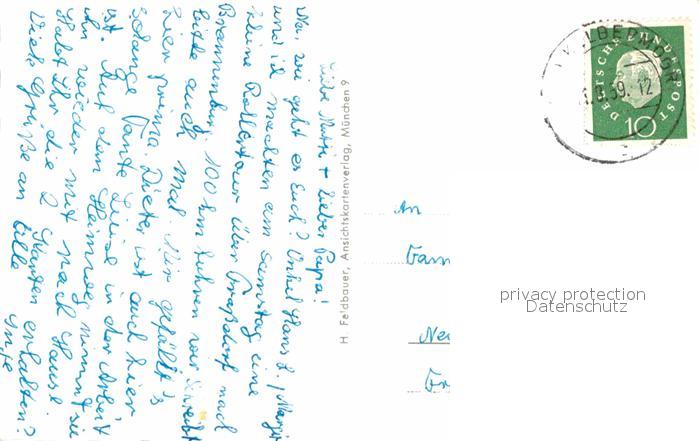 Liebe Mutti + lieber Papa!
Na, wie geht es Euch? Onkel Hans L., Margit
und ich machten am Samstag eine
kleine Rollertour über Graßdorf nach
Brannenburg. 100 km fuhren wir. Schreibt
bitte auch mal. Mir gefällt's
hier prima. Dieter ist auch hier
solange Tante Luise in der Arbeit
ist. Auf dem Heimweg nimmt sie
ihn wieder mit nach Hause.
Habt Ihr die 2 Karten erhalten?
Viele Grüße an alle
H. Feldbauer, Ansichtskartenverlag, München 9
DEUTSCHE BUNDESPOST
10
59. 12
An
Fam
privacy protection
Datenschutz